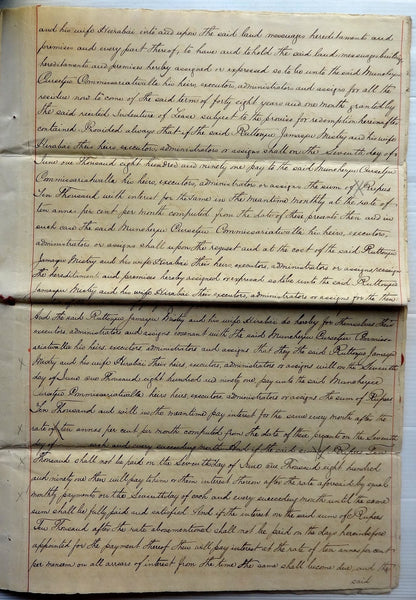 and his wife Heerabai into and upon the said land messuages hereditaments and
premises and every part thereof, to have and to hold the said land messuages buildings
hereditaments and premises hereby assigned or expressed so to be unto the said Muncherjee
Cursetjee Commissariatwalla his heirs, executors, administrators and assigns for all the
residue now to come of the said term of forty eight years and one month granted by
the said recited Indenture of Lease subject to the proviso for redemption hereinafter
contained Provided always that if the said Ruttonjee Jamasjee Mistry and his wife
Heerabai their heirs, executors, administrators or assigns shall on the Seventh day of
June one Thousand eight hundred and ninety one pay to the said Muncherjee Cursetjee
Commissariatwalla his heirs, executors, administrators or assigns the sum of Rupees
Ten Thousand with interest for the same in the meantime monthly at the rate of
ten annas per cent per month computed from the date of these presents then and in
such case the said Muncherjee Cursetjee Commissariatwalla his heirs, executors,
administrators or assigns shall upon the request and at the cost of the said Ruttonjee
Jamasjee Mistry and his wife Heerabai their heirs, executors, administrators or assigns reassign
the hereditaments and premises hereby assigned or expressed so to be unto the said Ruttonjee
Jamasjee Mistry and his wife Heerabai their heirs, executors, administrators or assigns for the then
And the said Ruttonjee Jamasjee Mistry and his wife Heerabai do hereby for themselves their
executors administrators and assigns covenant with the said Muncherjee Cursetjee Commissa-
riatwalla his heirs, executors, administrators and assigns that they the said Ruttonjee Jamasjee
Mistry and his wife Heerabai their heirs, executors, administrators or assigns will on the Seventh
day of June one Thousand eight hundred and ninety one, pay unto the said Muncherjee
Cursetjee Commissariatwalla his heirs, executors, administrators or assigns the sum of Rupees
Ten Thousand and will in the meantime pay interest for the same every month after the
rate of ten annas per cent per month computed from the date of these presents on the Seventh
day of each and every succeeding month And if the said sum of Rupees Ten
Thousand shall not be paid on the Seventh day of June one Thousand eight hundred
and ninety one they will pay to him or them interest thereon after the rate aforesaid by equal
monthly payments on the Seventh day of each and every succeeding month until the same
sum shall be fully paid and satisfied And if the interest on the said sum of Rupees
Ten Thousand after the rate abovementioned shall not be paid on the days hereinbefore
appointed for the payment thereof they will pay interest at the rate of ten annas per cent
per mensem on all arrears of interest from the time the same shall become due, and the
said